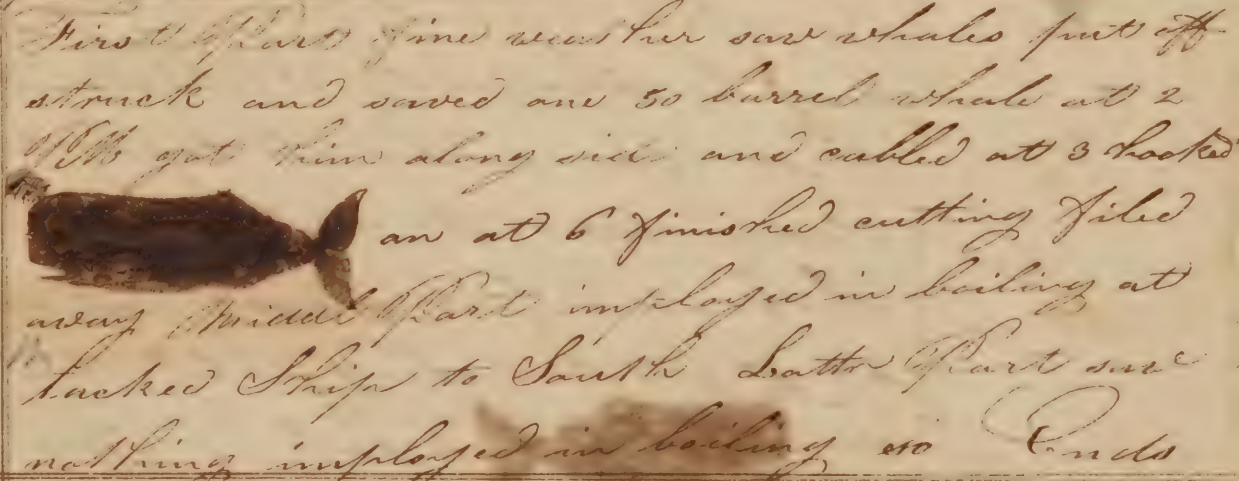 First Part fine weather saw whales put off
struck and saved one 50 barrel whale at 2
PM got him along side and cabled at 3 hooked
an at 6 finished cutting filed
away Middl Part imployed in boiling at
tacked Ship to South Lattr Part saw
nothing imployed in boiling so Ends